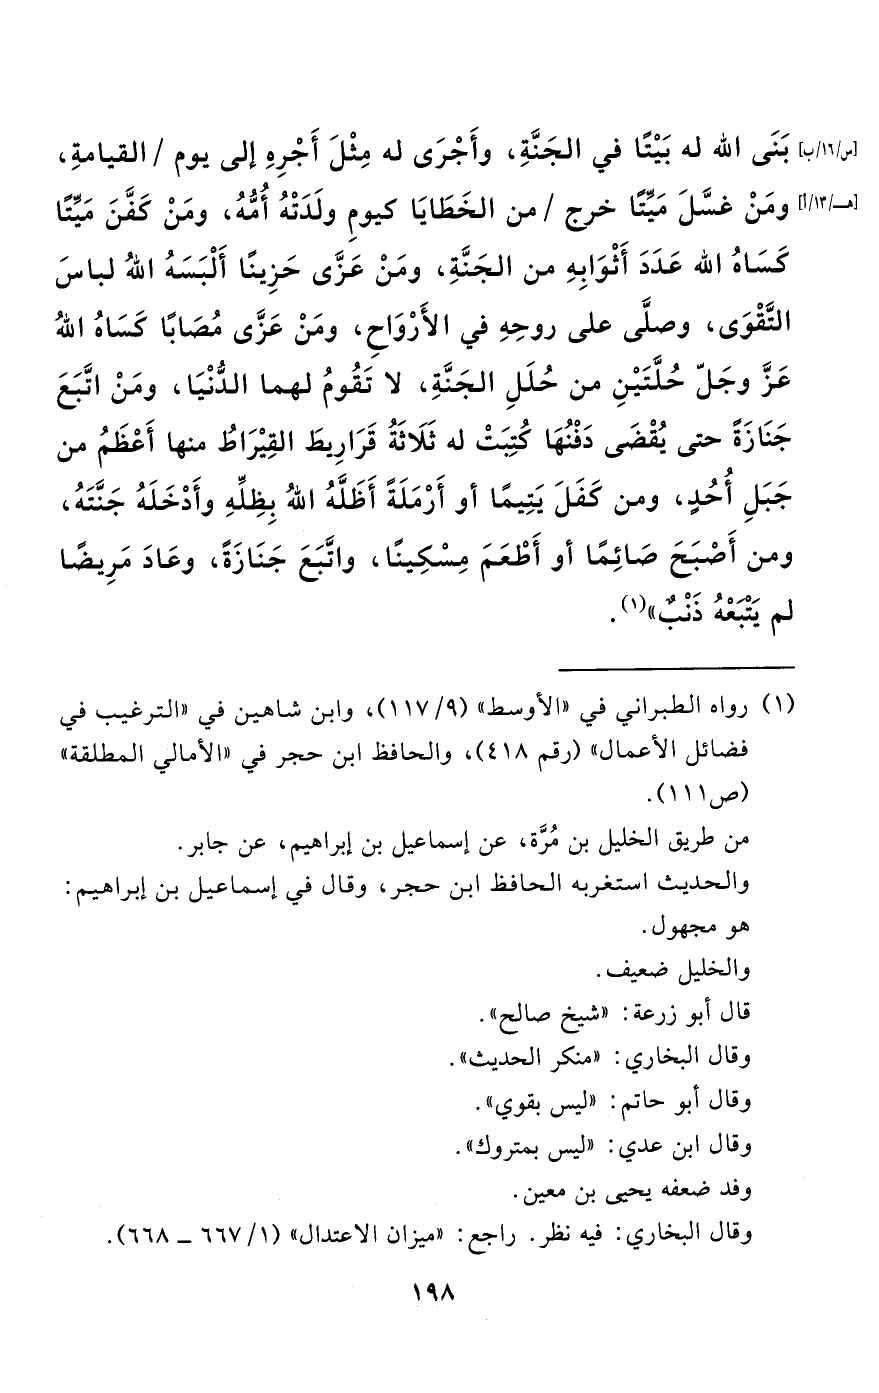 [س/١٦/ب] بَنَى الله له بَيْتًا في الجَنَّةِ، وأَجْرَى له مِثْلَ أَجْرِهِ إلى يوم / القيامةِ،
[هـ/١٣/أ] ومَنْ غسَّلَ مَيِّتًا خرج / من الخَطَايَا كيومِ ولَدَتْهُ أُمُّهُ، ومَنْ كَفَّنَ مَيِّتًا
كَسَاهُ الله عَدَدَ أَثْوَابِهِ من الجَنَّةِ، ومَنْ عَزَّى حَزِينًا أَلْبَسَهُ اللهُ لباسَ
التَّقْوَى، وصلَّى على روحِهِ في الأَرْوَاحِ، ومَنْ عَزَّى مُصَابًا كَسَاهُ اللهُ
عَزَّ وجَلّ حُلَّتَيْنِ من حُلَلِ الجَنَّةِ، لا تَقُومُ لهما الدُّنْيَا، ومَنْ اتَّبَعَ
جَنَازَةً حتى يُقْضَى دَفْنُهَا كُتِبَتْ له ثَلَاثَةُ قَرَارِيطَ القِيْرَاطُ منها أَعْظَمُ من
جَبَلِ أُحُدٍ، ومن كَفَلَ يَتِيمًا أو أَرْمَلَةً أَظَلَّهُ اللهُ بِظِلِّهِ وأَدْخَلَهُ جَنَّتَهُ،
ومن أَصْبَحَ صَائِمًا أو أَطْعَمَ مِسْكِينًا، واتَّبَعَ جَنَازَةً، وعَادَ مَرِيضًا
لم يَتْبَعْهُ ذَنْبٌ»(١).
(١) رواه الطبراني في «الأوسط» (٩/ ١١٧)، وابن شاهين في «الترغيب في
فضائل الأعمال» (رقم ٤١٨)، والحافظ ابن حجر في «الأمالي المطلقة»
(ص١١١).
من طريق الخليل بن مُرَّة، عن إسماعيل بن إبراهيم، عن جابر.
والحديث استغربه الحافظ ابن حجر، وقال في إسماعيل بن إبراهيم:
هو مجهول.
والخليل ضعيف.
قال أبو زرعة: «شيخ صالح».
وقال البخاري: «منكر الحديث».
وقال أبو حاتم: «ليس بقوي».
وقال ابن عدي: «ليس بمتروك».
وفد ضعفه يحيى بن معين.
وقال البخاري: فيه نظر. راجع: «ميزان الاعتدال» (١/ ٦٦٧ ــ ٦٦٨).
١٩٨